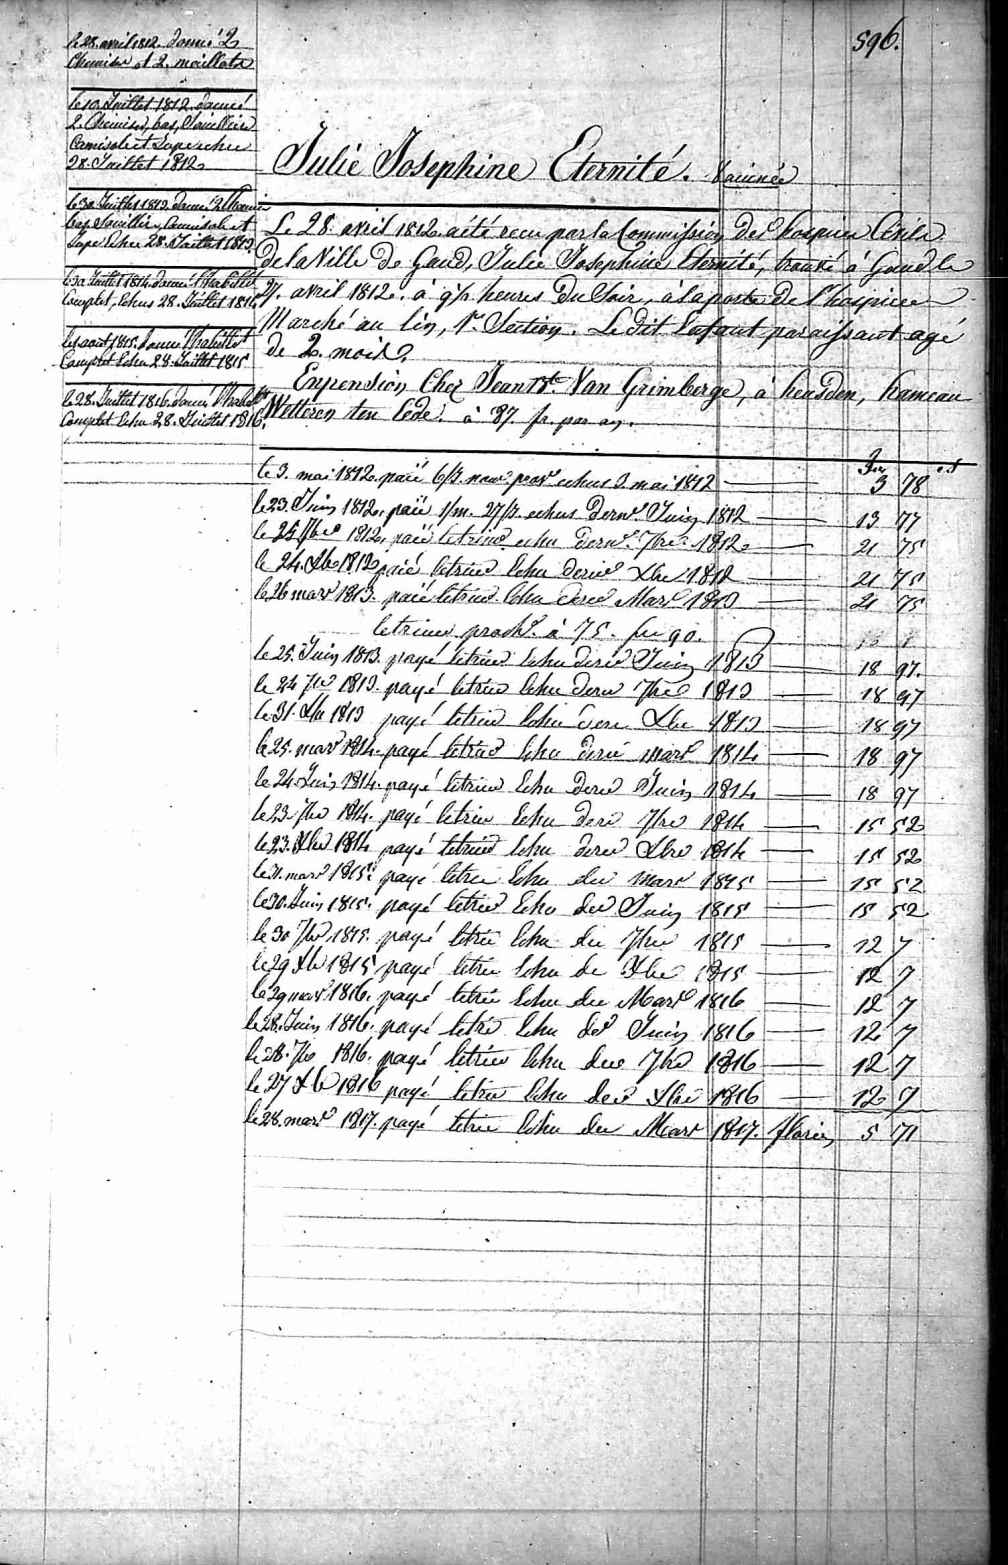 596.
le 28. avril 1812. donné 2
Chemises et 2. maillots
le 10. Juillet 1812. donné
2. Chemises, bas, Souilliers
Camisole et Jupe echu
28. Juillet 1812
le 30 Juillet 1813. donné 2 Chemises
bas, Souilliers, Camisole et
Jupe Echu 28. Juillet 1813
le 30 Juillet 1814. donné l'habillet
Complet, Echus 28. Juillet 1814
le 1 aout 1815. donné l'habillet
Complet Echu 28. Juillet 1815
le 28. Juillet 1816. donné l'habillet
Complet Echu 28. Juillet 1816.
Julie Josephine Eternité.
Le 28. avril 1812. a été recu par la Commission des hospices Civils
de la Ville de Gand, Julie Josephine Eternité, trouvé à Gand le
27. avril 1812. à 9½ heures du Soir, à la porte de l'hospice
Marché au lin, 1re Section. Le dit Enfant paraissant agé
de 2. mois.
En pension Chez Jean Bte Van Grimberge, à heusden, hameau
Wetteren ten Eede. à 87. fr. par an.
le 3. mai 1812. paié 6/3. echus 3. mai 1812 3 78
le 23. Juin 1812. paié 1/m. 27/3. echus dern. Juin 1812 13 77
le 25 7bre 1812. paié le trim. echu dern. 7bre 1812 21 75
le 24. Xbre 1812 paié le trim. Echu dern. Xbre 1812 21 75
le 26 mars 1813. paié le trim. Echu dern. Mars 1813 21 75
le trim. proch. à 75. fr. 90.
le 25. Juin 1813. payé le trim. Echu dern. Juin 1813 18 97.
le 24 7bre 1813. payé le trim. Echu dern. 7bre 1813 18 97
le 31. Xbre 1813 payé le trim. Echu dern. Xbre 1813 18 97
le 25. mars 1814. payé le trim. Echu dern. mars 1814 18 97
le 24. Juin 1814. payé le trim. Echu dern. Juin 1814 18 97
le 23. 7bre 1814. payé le trim. Echu dern. 7bre 1814 15 52
le 23. Xbre 1814 payé le trim. Echu dern. Xbre 1814 15 52
le 31. mars 1815. payé le trim. Echu der. mars 1815 15 52
le 30. Juin 1815. payé le trim. Echu der. Juin 1815 15 52
le 30 7bre 1815. payé le trim. Echu der. 7bre 1815 12 7
le 29 Xbre 1815 payé le trim. Echu de Xbre 1815 12 7
le 29 mars 1816. payé le trim. Echu der. Mars 1816 12 7
le 28. Juin 1816. payé le trim. Echu der. Juin 1816 12 7
le 28. 7bre 1816. payé le trim. Echu der. 7bre 1816 12 7
le 27 Xbre 1816 payé le trim. Echu der. Xbre 1816 12 7
le 28. mars 1817. payé le trim. Echu der. Mars 1817. florins 5 71